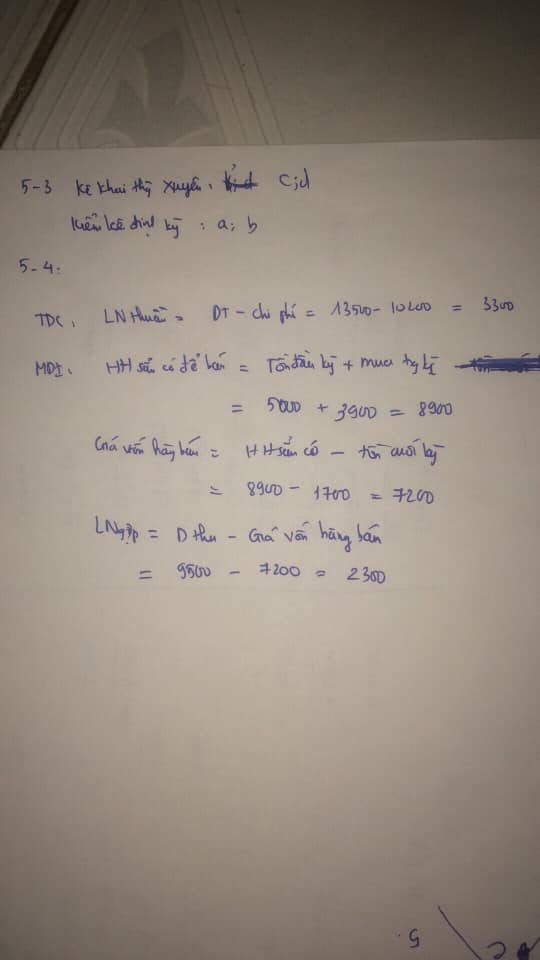 5-3 Kê khai thg xuyên: c; d
Kiểm kê định kỳ : a; b
5-4:
TDC: LN thuần = DT - chi phí = 13500 - 10200 = 3300
MDI: HH sẵn có để bán = Tồn đầu kỳ + mua tg kỳ
= 5000 + 3900 = 8900
Giá vốn hàng bán = HH sẵn có - tồn cuối kỳ
= 8900 - 1700 = 7200
LN gộp = D thu - Giá vốn hàng bán
= 9500 - 7200 = 2300
5.